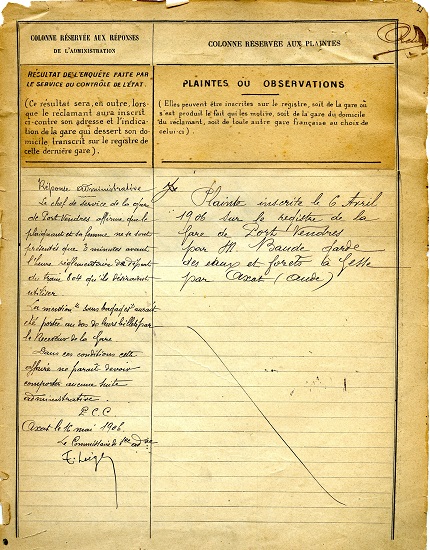 COLONNE RÉSERVÉE AUX RÉPONSES
DE L'ADMINISTRATION
RÉSULTAT DE L'ENQUÊTE FAITE PAR
LE SERVICE DU CONTRÔLE DE L'ÉTAT.
(Ce résultat sera, en outre, lors-
que le réclamant aura inscrit
ci-contre son adresse et l'indica-
tion de la gare qui dessert son do-
micile transcrit sur le registre de
cette dernière gare).
Réponse administrative
Le chef de service de la gare
de Port-Vendres affirme que le
plaignant et sa femme ne se sont
présentés que 3 minutes avant
l'heure réglementaire du départ
du train 804 qu'ils désiraient
utiliser.
La mention "sans bagages" aurait
été portée au dos de leurs billets par
le Receveur de la Gare.
Dans ces conditions cette
affaire ne paraît devoir
comporter aucune suite
administrative.
P.C.C
Axat le 12 mai 1906.
Le Commissaire de
COLONNE RÉSERVÉE AUX PLAINTES
PLAINTES OU OBSERVATIONS
(Elles peuvent être inscrites sur le registre, soit de la gare où
s'est produit le fait qui les motive, soit de la gare du domicile
du réclamant, soit de toute autre gare française au choix de
celui-ci).
Plainte inscrite le 6 Avril
1906 sur le registre de la
Gare de Port Vendres
par M. Baude Garde
des eaux et forêts à Gesse
par Axat (Aude)